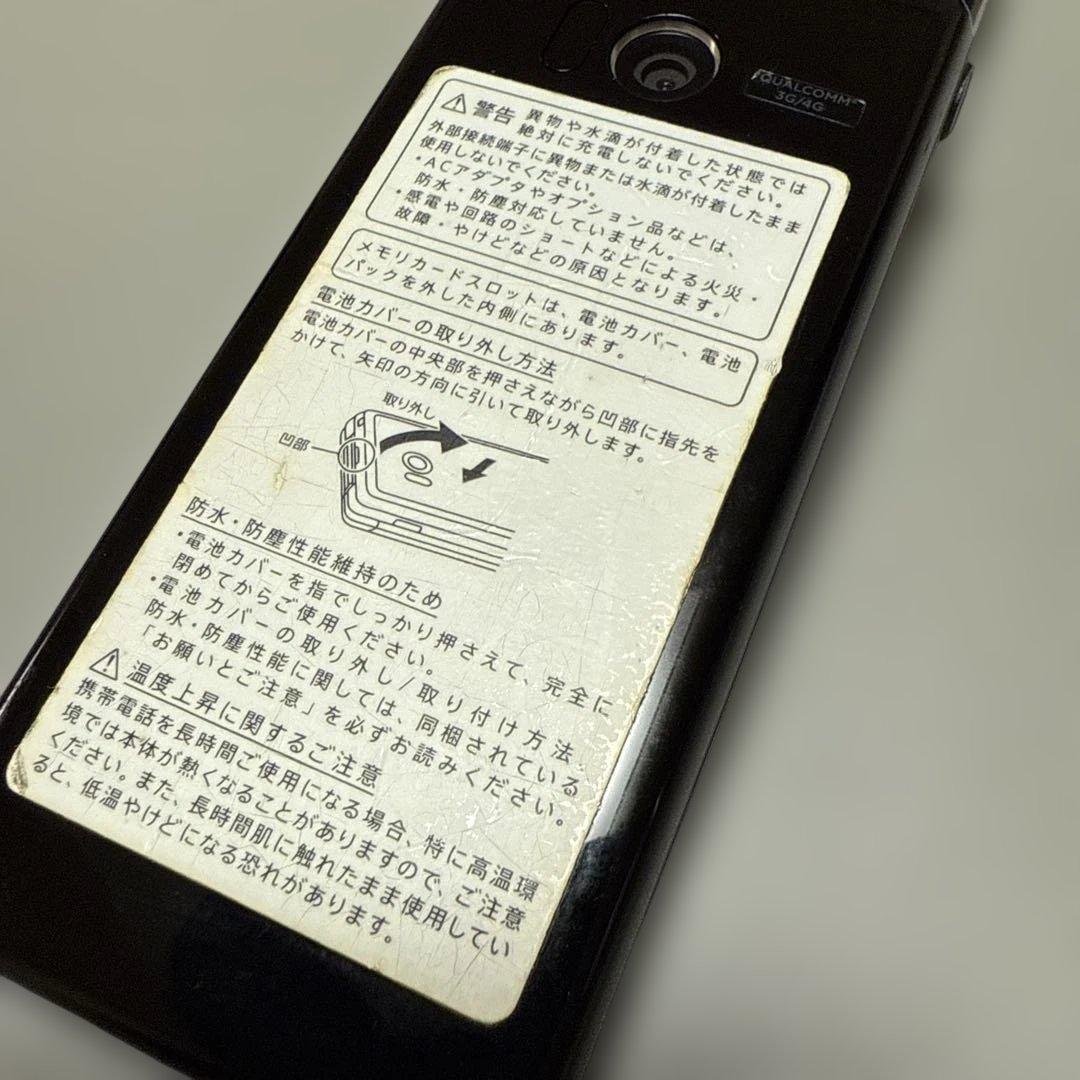 QUALCOMM®
3G/4G
警告 異物や水滴が付着した状態では
絶対に充電しないでください。
外部接続端子に異物または水滴が付着したまま
使用しないでください。
・ACアダプタやオプション品などは、
防水・防塵対応していません。
・感電や回路のショートなどによる火災・
故障・やけどなどの原因となります。
メモリカードスロットは、電池カバー、電池
パックを外した内側にあります。
電池カバーの取り外し方法
電池カバーの中央部を押さえながら凹部に指先を
かけて、矢印の方向に引いて取り外します。
取り外し
凹部
防水・防塵性能維持のため
・電池カバーを指でしっかり押さえて、完全に
閉めてからご使用ください。
・電池カバーの取り外し/取り付け方法
防水・防塵性能に関しては、同梱されている
「お願いとご注意」を必ずお読みください。
温度上昇に関するご注意
携帯電話を長時間ご使用になる場合、特に高温環
境では本体が熱くなることがありますので、ご注意
ください。また、長時間肌に触れたまま使用してい
ると、低温やけどになる恐れがあります。